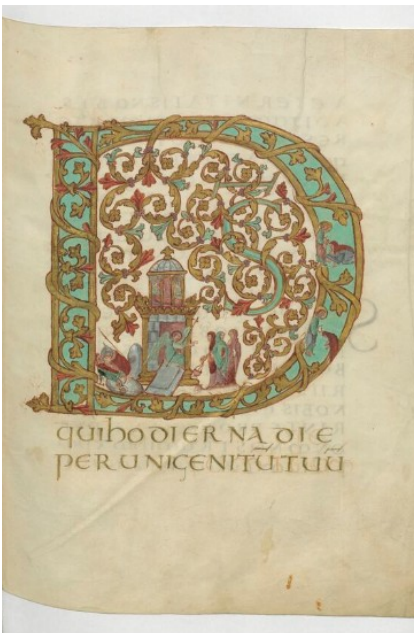 DS
quihodierna die
per unigenitū tuū